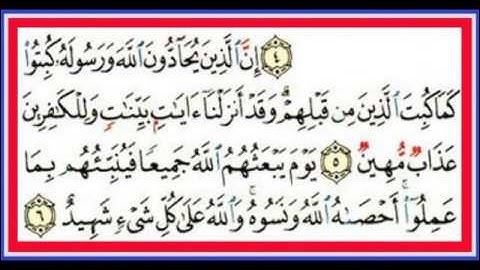 ٤ إِنَّ ٱلَّذِينَ يُحَآدُّونَ ٱللَّهَ وَرَسُولَهُۥ كُبِتُوا۟
كَمَا كُبِتَ ٱلَّذِينَ مِن قَبْلِهِمْ ۚ وَقَدْ أَنزَلْنَآ ءَايَٰتٍۭ بَيِّنَٰتٍ ۚ وَلِلْكَٰفِرِينَ
عَذَابٌ مُّهِينٌ ٥ يَوْمَ يَبْعَثُهُمُ ٱللَّهُ جَمِيعًا فَيُنَبِّئُهُم بِمَا
عَمِلُوٓا۟ ۚ أَحْصَىٰهُ ٱللَّهُ وَنَسُوهُ ۚ وَٱللَّهُ عَلَىٰ كُلِّ شَىْءٍ شَهِيدٌ ٦